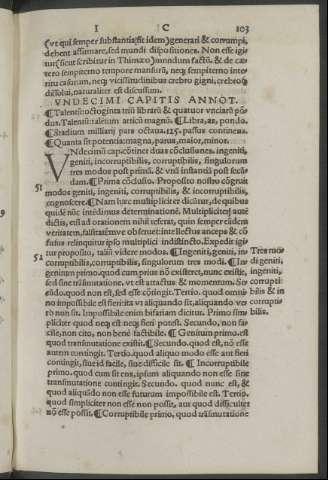 I C 103
(vt qui semper substantia sit idem) generari & corrumpi,
debent æstimare, sed mundi dispositiones. Non esse igi
tur (sicut scribitur in Thimæo) mundum factũ, & de cæ-
tero sempiterno tempore mansurũ, neqȝ sempiterno inte-
ritu casurum, neqȝ vicissitudinibus crebro gigni, crebroqȝ
dissolui, naturaliter est discussum.
VNDECIMI CAPITIS ANNOT.
¶Talentũ: octoginta triũ librarũ & quatuor vnciarũ põ-
dus. Talentũ: talentum articũ magnũ. ¶Libra, as, pondo.
¶Stadium milliarij pars octaua. 125. passus continens.
¶Quanta sit potentia: magna, parua, maior, minor.
VNdecimũ capȝ cõtinet duas cõclusiones. ingeniti,
geniti, incorruptibilis, corruptibilis, singulorum
tres modos post primã. & vnã instantiã post secũ-
51 dam. ¶Prima cõclusio. Proposito nostro cõgruit
modos geniti, ingeniti, corruptibilis, & incorruptibilis,
cognoscere. ¶Nam hæc multipliciter dicũtur, de quibus
quidẽ nũc intendimus determinationẽ. Multipliciter autẽ
dictis, etsi ad orationem nihil referat, quin semper eãdem
veritatem, falsitatẽmve obseruet: intellectus anceps & cõ
fusus relinquitur ipso multiplici indistincto. Expedit igi-
tur proposito, taliũ videre modos. ¶Ingeniti, geniti, in-
52 corruptibilis, corruptibilis, singulorum tres modi. ¶In
genitum primo. quod cum prius nõ existeret, nunc existit,
sed sine trãsmutatione. vt est attactus & momentum. Se-
cũdo. quod non est, sed esse cõtingit. Tertio. quod omni-
no impossibile est fieri: ita vt aliquando sit, aliquando ve-
ro non sit. Impossibile enim bifariam dicitur. Primo sim-
pliciter quod neqȝ est neqȝ fieri potest. Secundo, non fa-
cile, non cito, non benè factibile. ¶ Genitum primo. est
quod transmutatione existit. ¶Secundo. quod est, nõ esse
autem contingit. Tertio. quod aliquo modo esse aut fieri
contingit, siue id facile, siue difficile sit. ¶ Incorruptibile
primo. quod cum sit ens, ipsum aliquando non esse sine
transmutatione contingit. Secundo. quod nunc est, &
quod aliquãdo non esse futurum impossibile est. Tertio.
quod simpliciter non esse non possit, aut quod difficulter
nõ esse possit. ¶Corruptibile primo, quod trãsmutatione
Tres mo-
di geniti,
ingeniti,
corrupti-
bilis & in
corrupti-
bilis.